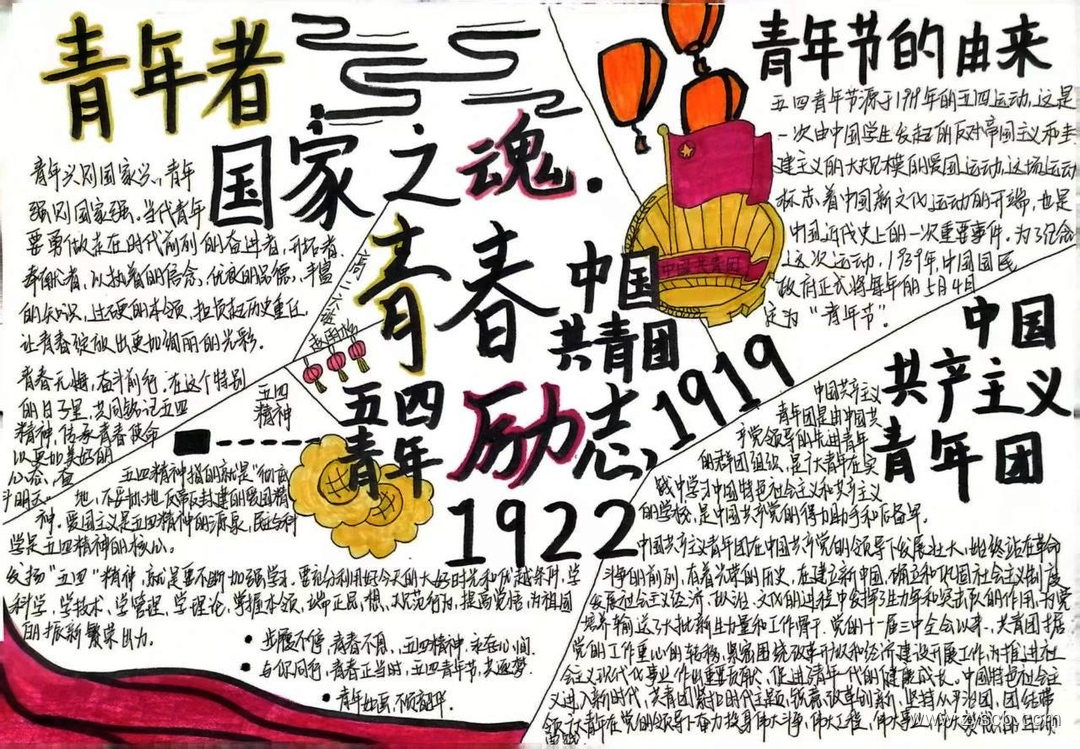 青年者
国家之魂.
青年兴则国家兴,青年
强则国家强。当代青年
要勇做走在时代前列的奋进者,开拓者,
奉献者,以执着的信念,优良的品德,丰富
的知识,过硬的本领,担负起历史重任,
让青春绽放出更加绚丽的光彩.
青春无悔,奋斗前行.在这个特别
的日子里,共同铭记五四
精神,传承青春使命
以更加美好的
五四
精神
五四精神指的就是"彻底
地,不妥协地反帝反封建的爱国精
神.爱国主义是五四精神的源泉,民主与科
学是五四精神的核心.
发扬"五四"精神,就是要不断加强学习,要充分利用好今天的大好时光和优越条件,学
科学,学技术,学管理,学理论,掌握本领,端正思想,规范行为,提高觉悟,为祖国
的振新繁荣出力.
步履不停,青春不息,五四精神,永在心间.
与你同行,青春正当时,五四青年节,共逐梦.
青年如画,不负韶华.
青春
励志
中国
共青团
五四
青年
1919
1922
中国共青团
青年节的由来
五四青年节源于1919年的五四运动,这是
一次由中国学生发起的反对帝国主义和封
建主义的大规模的爱国运动,这场运动
标志着中国新文化运动的开端,也是
中国近代史上的一次重要事件。为了纪念
这次运动,1939年,中国国民
政府正式将每年的5月4日
定为"青年节".
中国
共产主义
青年团
中国共产主义
青年团是由中国共
产党领导的先进青年
的群团组织,是广大青年在实
践中学习中国特色社会主义和共产主义
的学校,是中国共产党的得力助手和后备军.
中国共产主义青年团在中国共产党的领导下发展壮大,始终站在革命
斗争的前列,有着光荣的历史.在建立新中国,确立和巩固社会主义制度
发展社会主义经济,政治,文化的过程中发挥了生力军和突击队的作用,为党
培养输送了大批新生力量和工作骨干.党的十一届三中全会以来,共青团根据
党的工作重心的转移,紧密围绕改革开放和经济建设开展工作,为推进社
会主义现代化事业作出重要贡献,促进了青年一代的健康成长.中国特色社会主
义进入新时代,共青团紧扣时代主题,锐意改革创新,坚持从严治团,团结带
领广大青年在党的领导下奋力投身伟大斗争,伟大工程,伟大事业,伟大